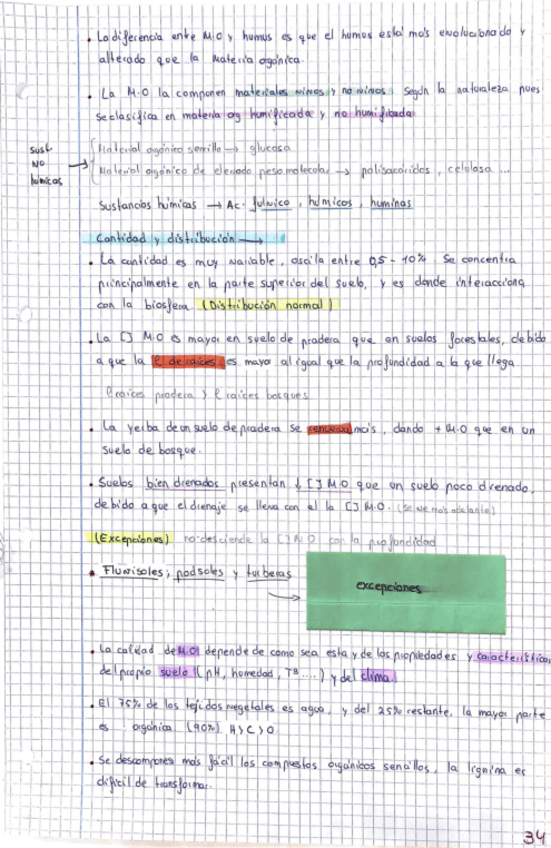 • La diferencia entre M.O y humus es que el humus está más evolucionado y
alterado que la materia orgánica.
• La M.O la componen materiales vivos y no vivos. Según la naturaleza pues
se clasifica en materia org humificada y no humificada
Sust.
NO
húmicas
Material orgánico sencillo → glucosa
Material orgánico de elevado peso molecular → polisacáridos, celulosa...
Sustancias húmicas → Ac. fulvico, húmicos, huminas
Cantidad y distribución →
• La cantidad es muy variable, oscila entre 0,5 - 10%. Se concentra
principalmente en la parte superior del suelo, y es donde interacciona
con la biosfera (Distribución normal)
• La [] M.O es mayor en suelo de pradera que en suelos forestales, debido
a que la ρ de raíces es mayor al igual que la profundidad a la que llega.
ρ raíces pradera > ρ raíces bosques
• La yerba de un suelo de pradera se renueva más, dando + M.O que en un
suelo de bosque.
• Suelos bien drenados presentan ↓ [] M.O que un suelo poco drenado,
debido a que el drenaje se lleva con él la [] M.O. (se ve más adelante)
(Excepciones) no desciende la [] M.O con la profundidad
• Fluvisoles, podsoles y turberas →
excepciones
• La calidad de M.O depende de como sea esta y de las propiedades y características
del propio suelo (pH, humedad, Tª....) y del clima.
• El 75% de los tejidos vegetales es agua, y del 25% restante, la mayor parte
es orgánica (90%) H>C>O
• Se descompones más fácil los compuestos orgánicos sencillos, la lignina es
difícil de transformar.
34